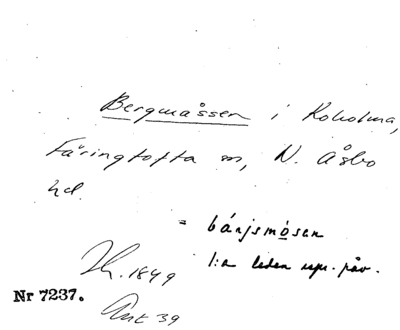 Bergmåssen i Koholma,
Färingtofta sn, N. Åsbo
hd.
= bánjsmósen
1:a leden upr. påv.
1849
Nr 7237.
Ark 39